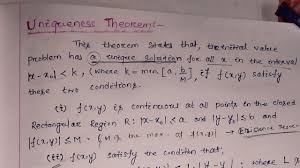 Uniqueness Theorem:-
This theorem states that, the initial value
problem has a unique solution for all x in the interval
|x-x₀| < k, (where k = min [a, b/M], if f(x,y) satisfy
these two conditions.
(i) f(x,y) is continuous at all points in the closed
Rectangular Region R: |x-x₀| ≤ a and |y-y₀| ≤ b and
|f(x,y)| ≤ M = of f(x,y) → Existence
(ii) f(x,y) satisfy the condition that;
where L